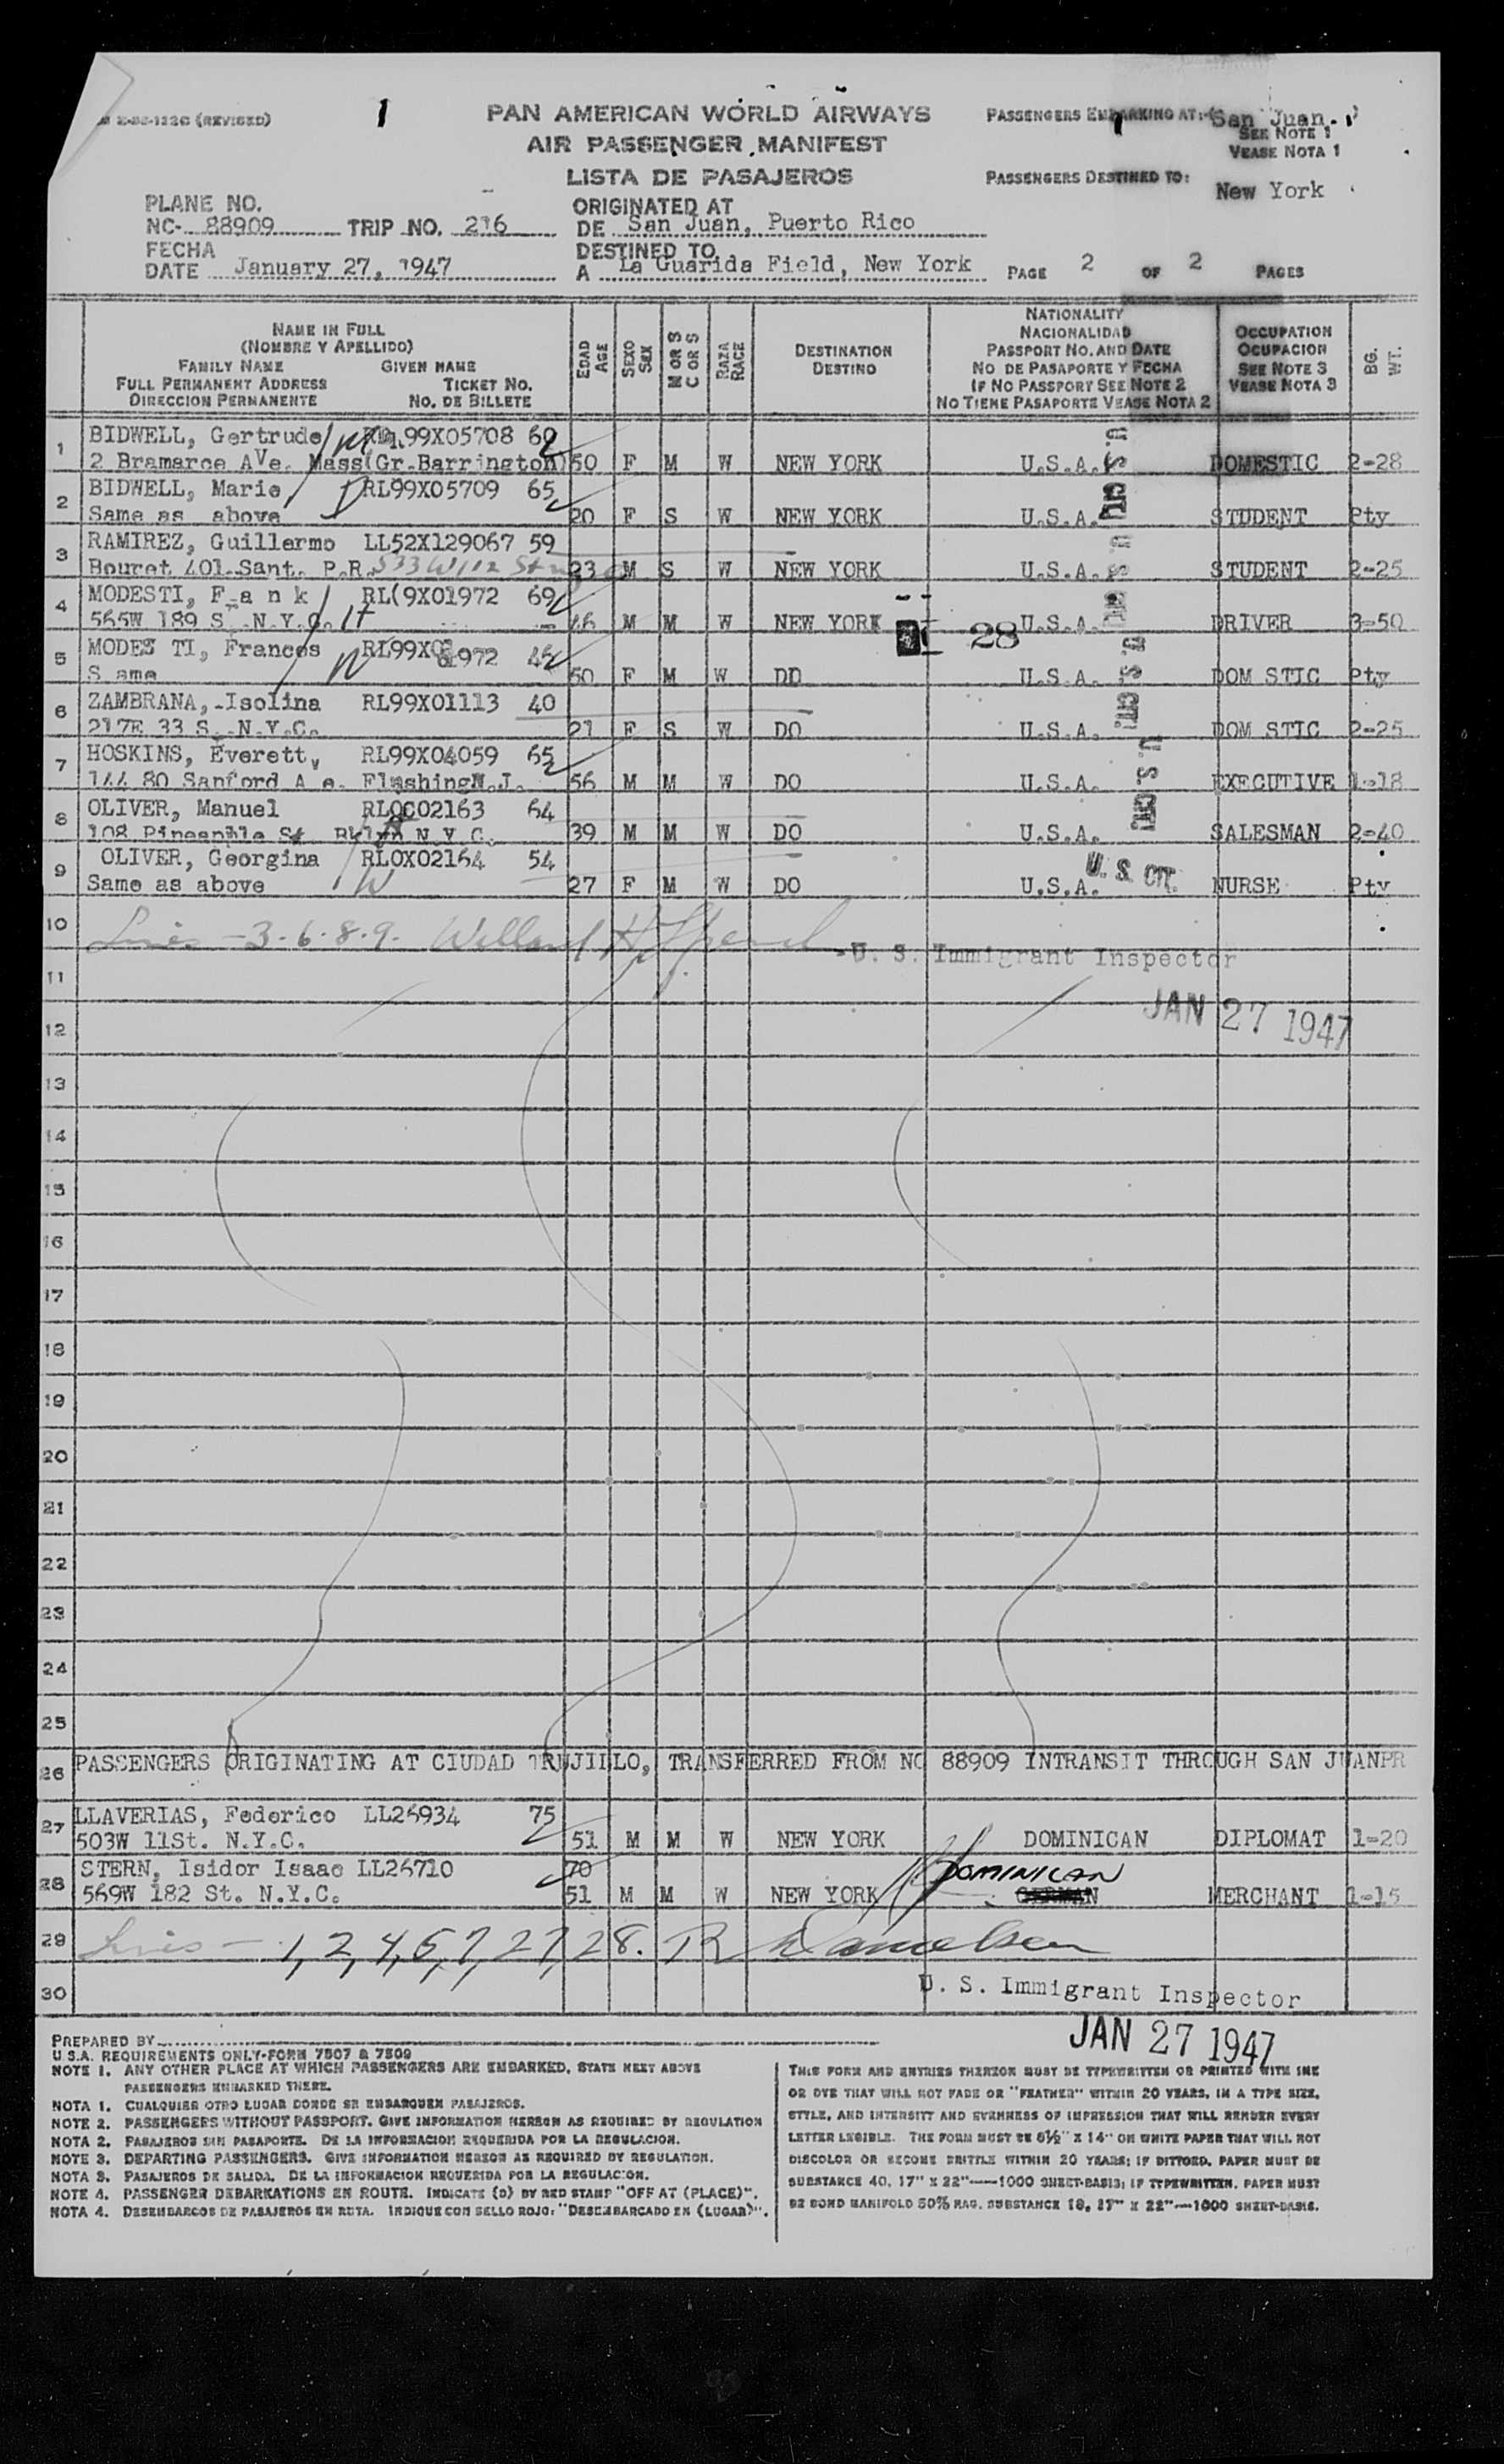 (REVISED)
1
PAN AMERICAN WORLD AIRWAYS
AIR PASSENGER MANIFEST
LISTA DE PASAJEROS
PASSENGERS EMBARKING AT: San Juan.
SEE NOTE 1
VEASE NOTA 1
PASSENGERS DESTINED TO: New York
PLANE NO.
NC- 88909 TRIP NO. 216
ORIGINATED AT
DE San Juan, Puerto Rico
FECHA
DATE January 27, 1947
DESTINED TO
A La Guarida Field, New York
PAGE 2 OF 2 PAGES
NAME IN FULL
(NOMBRE Y APELLIDO)
FAMILY NAME GIVEN NAME
FULL PERMANENT ADDRESS TICKET NO.
DIRECCION PERMANENTE NO. DE BILLETE
EDAD AGE
SEXO SEX
M OR S C OR S
RAZA RACE
DESTINATION
DESTINO
NATIONALITY
NACIONALIDAD
PASSPORT NO. AND DATE
NO DE PASAPORTE Y FECHA
IF NO PASSPORT SEE NOTE 2
NO TIENE PASAPORTE VEASE NOTA 2
OCCUPATION
OCUPACION
SEE NOTE 3
VEASE NOTA 3
BG. WT.
1 BIDWELL, Gertrude 99X05708 60
2 Bramarce AVe. Mass(Gr.Barrington) 50 F M W NEW YORK U.S.A. DOMESTIC 2-28
2 BIDWELL, Marie RL99X05709 65
Same as above 20 F S W NEW YORK U.S.A. STUDENT Pty
3 RAMIREZ, Guillermo LL52X129067 59
Bouret 401 Sant. P.R. 533 W 112 St 23 M S W NEW YORK U.S.A. STUDENT 2-25
4 MODESTI, F a n k RL(9X01972 69
565W 189 S N.Y.C. 46 M M W NEW YORK 28 U.S.A. DRIVER 3-50
5 MODES TI, Frances RL99X01972 45
S ame 50 F M W DD U.S.A. DOM STIC Pty
6 ZAMBRANA, Isolina RL99X01113 40
217E 33 S. N.Y.C. 21 F S W DO U.S.A. DOM STIC 2-25
7 HOSKINS, Everett, RL99X04059 65
144 80 Sanford A e. Flushing N.J. 56 M M W DO U.S.A. EXECUTIVE 1-18
8 OLIVER, Manuel RL0C02163 64
108 Pineapple St. Bklyn N.Y.C. 39 M M W DO U.S.A. SALESMAN 2-40
9 OLIVER, Georgina RL0X02164 54
Same as above 27 F M W DO U.S.A. NURSE Pty
U. S. CIT.
10 Lines - 3-6-8-9-
U. S. Immigrant Inspector
11
JAN 27 1947
12
13
14
15
16
17
18
19
20
21
22
23
24
25
26 PASSENGERS ORIGINATING AT CIUDAD TRUJILLO, TRANSFERRED FROM NC 88909 INTRANSIT THROUGH SAN JUANPR
27 LLAVERIAS, Federico LL26934 75
503W 11St. N.Y.C. 51 M M W NEW YORK DOMINICAN DIPLOMAT 1-20
28 STERN, Isidor Isaac LL26710 70
DOMINICAN
569W 182 St. N.Y.C. 51 M M W NEW YORK GERMAN MERCHANT 1-15
29 Lines - 1, 2, 4, 5, 7, 27, 28.
30 U. S. Immigrant Inspector
JAN 27 1947
PREPARED BY
U.S.A. REQUIREMENTS ONLY-FORM 7507 & 7509
NOTE 1. ANY OTHER PLACE AT WHICH PASSENGERS ARE EMBARKED, STATE NEXT ABOVE
PASSENGERS EMBARKED THERE.
NOTA 1. CUALQUIER OTRO LUGAR DONDE SE EMBARQUEN PASAJEROS.
NOTE 2. PASSENGERS WITHOUT PASSPORT. GIVE INFORMATION HEREON AS REQUIRED BY REGULATION
NOTA 2. PASAJEROS SIN PASAPORTE. DE LA INFORMACION REQUERIDA POR LA REGULACION.
NOTE 3. DEPARTING PASSENGERS. GIVE INFORMATION HEREON AS REQUIRED BY REGULATION.
NOTA 3. PASAJEROS DE SALIDA. DE LA INFORMACION REQUERIDA POR LA REGULACION.
NOTE 4. PASSENGER DEBARKATIONS EN ROUTE. INDICATE (D) BY RED STAMP "OFF AT (PLACE)".
NOTA 4. DESEMBARCOS DE PASAJEROS EN RUTA. INDIQUE CON SELLO ROJO: "DESEMBARCADO EN (LUGAR)".
THIS FORM AND ENTRIES THEREON MUST BE TYPEWRITTEN OR PRINTED WITH INK
OR DYE THAT WILL NOT FADE OR "FEATHER" WITHIN 20 YEARS, IN A TYPE SIZE,
STYLE, AND INTENSITY AND EVENNESS OF IMPRESSION THAT WILL RENDER EVERY
LETTER LEGIBLE. THE FORM MUST BE 8½" X 14" ON WHITE PAPER THAT WILL NOT
DISCOLOR OR BECOME BRITTLE WITHIN 20 YEARS; IF DITTOED, PAPER MUST BE
SUBSTANCE 40, 17" X 22"—1000 SHEET-BASIS; IF TYPEWRITTEN, PAPER MUST
BE BOND MANIFOLD 50% RAG, SUBSTANCE 18, 17" X 22"—1000 SHEET-BASIS.